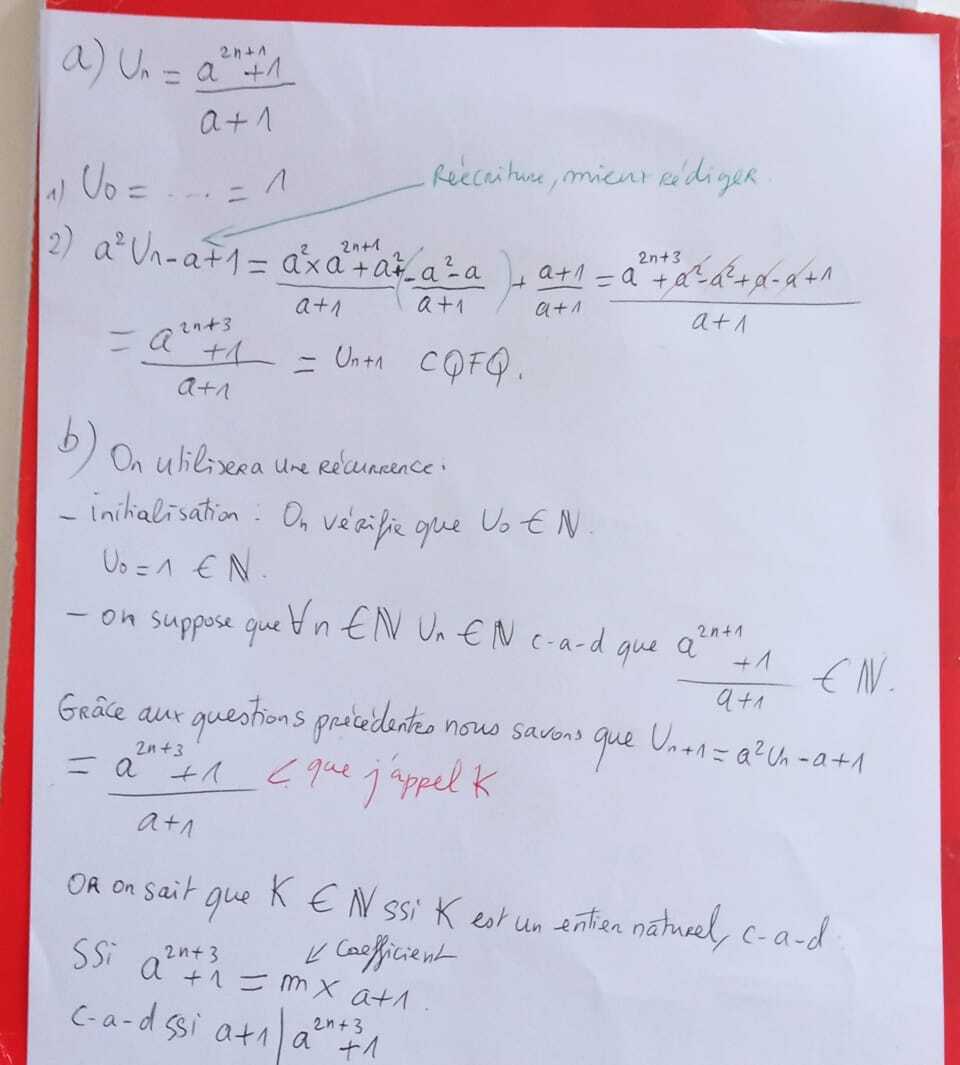 a) Un = (a^(2n+1) + 1)/(a+1)
1) U0 = .... = 1
Réécriture, mieux rédiger.
2) a²Un - a + 1 = (a² × a^(2n+1) + a²)/(a+1) + (-a² - a)/(a+1) + (a+1)/(a+1) = (a^(2n+3) + a² - a² + a - a + 1)/(a+1)
= (a^(2n+3) + 1)/(a+1) = Un+1 CQFQ.
b) On utilisera une récurrence.
- initialisation : On vérifie que U0 ∈ ℕ.
U0 = 1 ∈ ℕ.
- on suppose que ∀n ∈ ℕ Un ∈ ℕ c-a-d que (a^(2n+1) + 1)/(a+1) ∈ ℕ.
Grâce aux questions précédentes nous savons que Un+1 = a²Un - a + 1
= (a^(2n+3) + 1)/(a+1) < que j'appel K
OR on sait que K ∈ ℕ ssi K est un entier naturel, c-a-d
↙ Coefficient
SSi a^(2n+3) + 1 = m × a+1.
c-a-d ssi a+1 | a^(2n+3) + 1